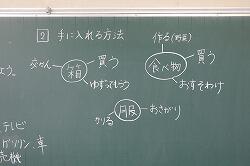 ② 手に入れる方法
作る(野菜)
交かん 箱 買う
ゆずってもらう
食べ物 買う
おすそわけ
服 おさがり
かりる
よう。
テレビ
ガソリン、車